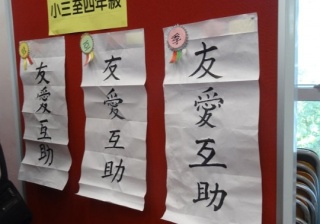 小三至四年級
友愛互助
友愛互助
友愛互助
季